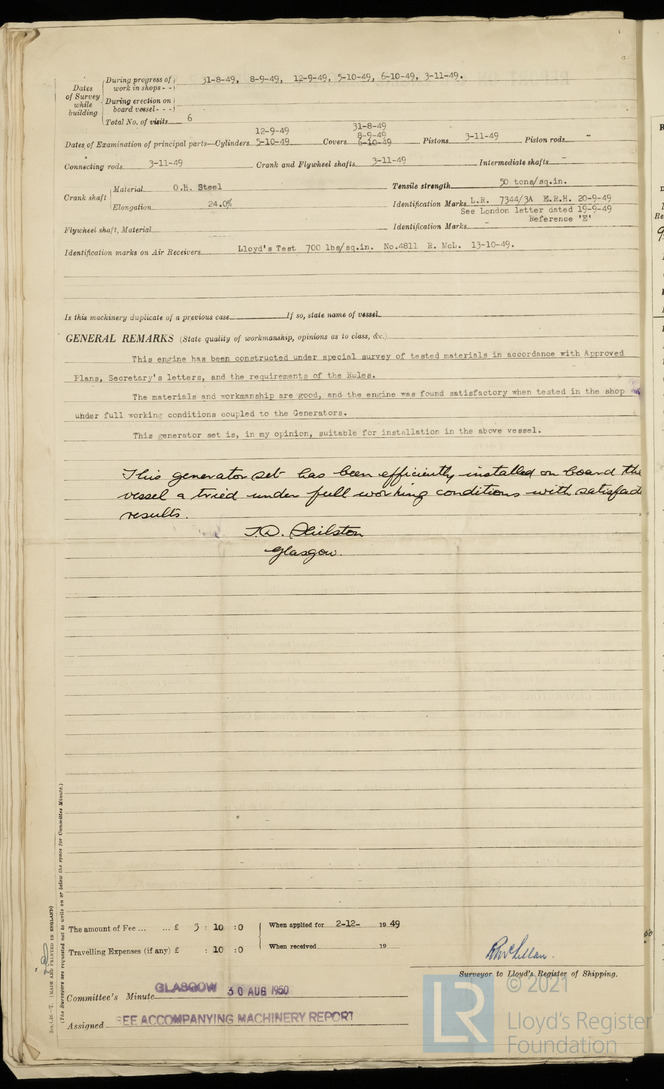 Dates of Survey while building
During progress of work in shops - - 31-8-49, 8-9-49, 12-9-49, 5-10-49, 6-10-49, 3-11-49.
During erection on board vessel - - -
Total No. of visits 6
Dates of Examination of principal parts—Cylinders 12-9-49 5-10-49 Covers 31-8-49 8-9-49 6-10-49 Pistons 3-11-49 Piston rods -
Connecting rods 3-11-49 Crank and Flywheel shafts 3-11-49 Intermediate shafts -
Crank shaft Material O.H. Steel Tensile strength 50 tons/sq.in.
Elongation 24.0% Identification Marks L.R. 7344/3A E.R.H. 20-9-49
See London letter dated 19-9-49
Reference 'E'
Flywheel shaft, Material - Identification Marks -
Identification marks on Air Receivers Lloyd's Test 700 lbs/sq.in. No.4811 R. McL. 13-10-49.
Is this machinery duplicate of a previous case If so, state name of vessel
GENERAL REMARKS (State quality of workmanship, opinions as to class, &c.)
This engine has been constructed under special survey of tested materials in accordance with Approved
Plans, Secretary's letters, and the requirements of the Rules.
The materials and workmanship are good, and the engine was found satisfactory when tested in the shop
under full working conditions coupled to the Generators.
This generator set is, in my opinion, suitable for installation in the above vessel.
This generator set has been efficiently installed on board the
vessel & tried under full working conditions with satisfact
results.
Glasgow.
The amount of Fee ... ... £ 5 : 10 : 0 When applied for 2-12- 19 49
Travelling Expenses (if any) £ : 10 : 0 When received 19
Surveyor to Lloyd's Register of Shipping.
Committee's Minute GLASGOW 30 AUG 1950
Assigned SEE ACCOMPANYING MACHINERY REPORT
(MADE AND PRINTED IN ENGLAND)
(The Surveyors are requested not to write on or below the space for Committee Minute.)
LR
© 2021
Lloyd's Register
Foundation